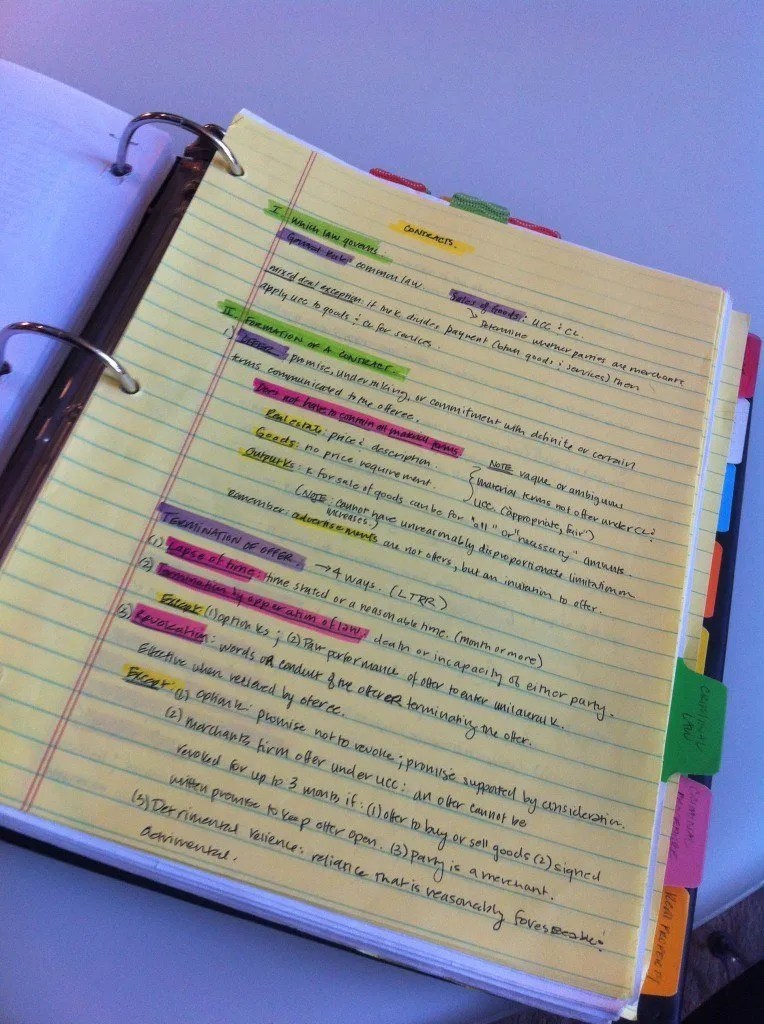 CONTRACTS.
I. Which law governs
General Rule: common law
Sales of Goods: UCC & CL.
↳ Determine whether parties are merchants
mixed deal exception: if mix K divides payment (btwn goods & services) then
apply UCC to goods & CL for services.
II. FORMATION OF A CONTRACT.
1) OFFER: promise, undertaking, or commitment with definite or certain
terms communicated to the offeree.
Does not have to contain all material terms.
Real estate: price & description.
Goods: no price requirement.
NOTE vague or ambiguous
material terms not offer under CL &
UCC. ("appropriate, fair")
Output Ks: K for sale of goods can be for "all" or "necessary" amounts.
(NOTE: cannot have unreasonably disproportionate limitation
increases.)
Remember: advertisements are not offers, but an invitation to offer.
TERMINATION OF OFFER. → 4 ways. (LTRR)
(1) Lapse of time: time stated or a reasonable time. (month or more)
(2) Termination by operation of law, death or incapacity of either party.
Except (1) option Ks; (2) Part performance of offer to enter unilateral K.
(3) Revocation: words OR conduct of the offerER terminating the offer.
Effective when recieved by oferee.
Except: (1) Option K: promise not to revoke; promise supported by consideration.
(2) merchants firm offer under UCC: an offer cannot be
revoked for up to 3 months if: (1) offer to buy or sell goods (2) signed
written promise to keep offer open. (3) party is a merchant.
(3) Detrimental relience: reliance that is reasonably foreseeable &
detrimental.
CRIMINAL
LAW
CRIMINAL
PROCEDURE
REAL PROPERTY